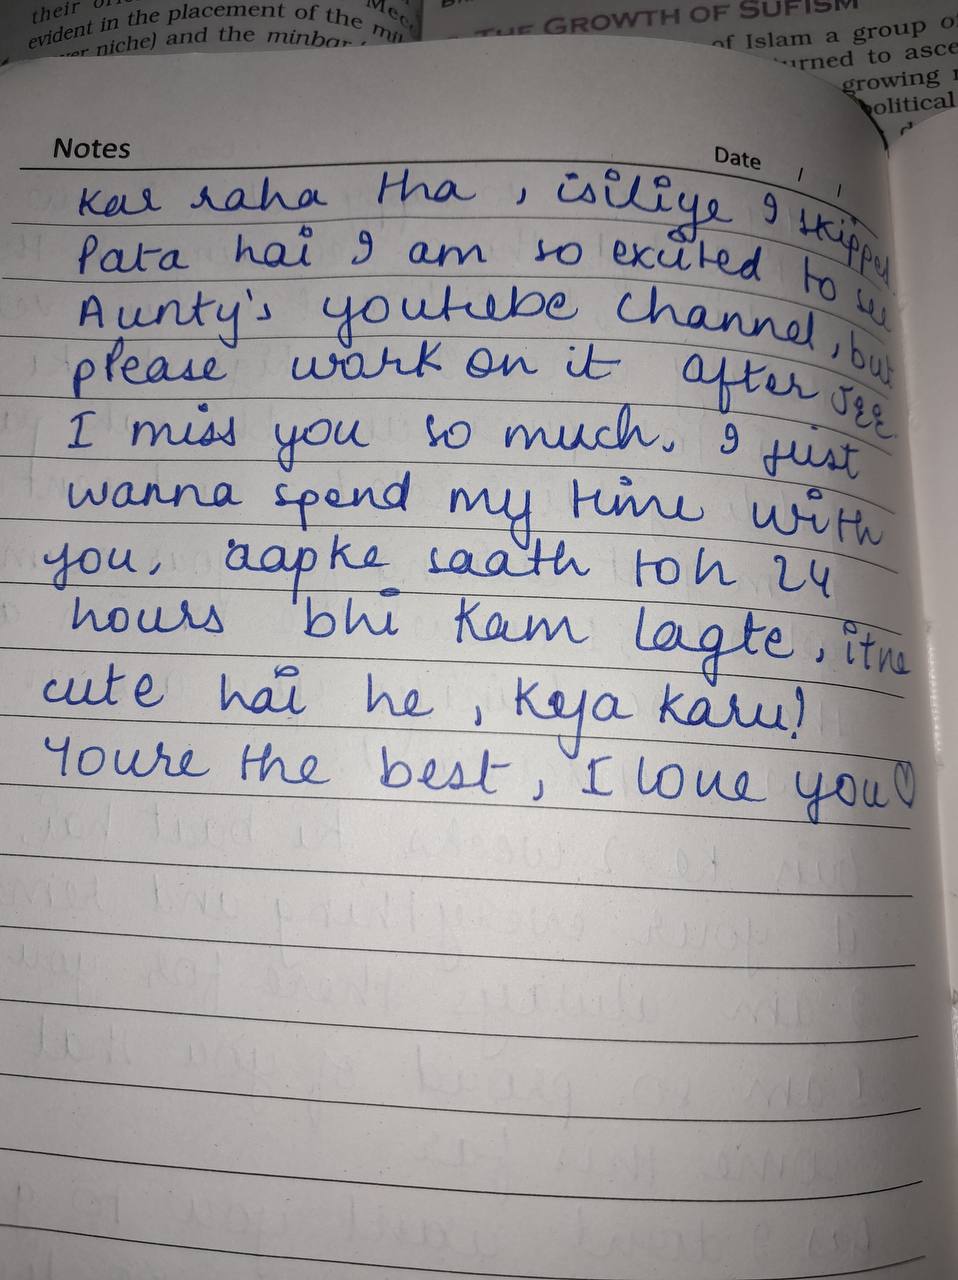 their
evident in the placement of the
niche) and the minbar
THE GROWTH OF SUFISM
of Islam a group of
turned to asce
growing
political
Notes
Date / /
Kar raha tha, isiliye I skipped
Pata hai I am so excited to see
Aunty's youtube channel, but
please work on it after JEE
I miss you so much. I just
wanna spend my time with
you, aapke saath toh 24
hours bhi kam lagte, itne
cute hai he, kya karu!
Youre the best, I love you♡